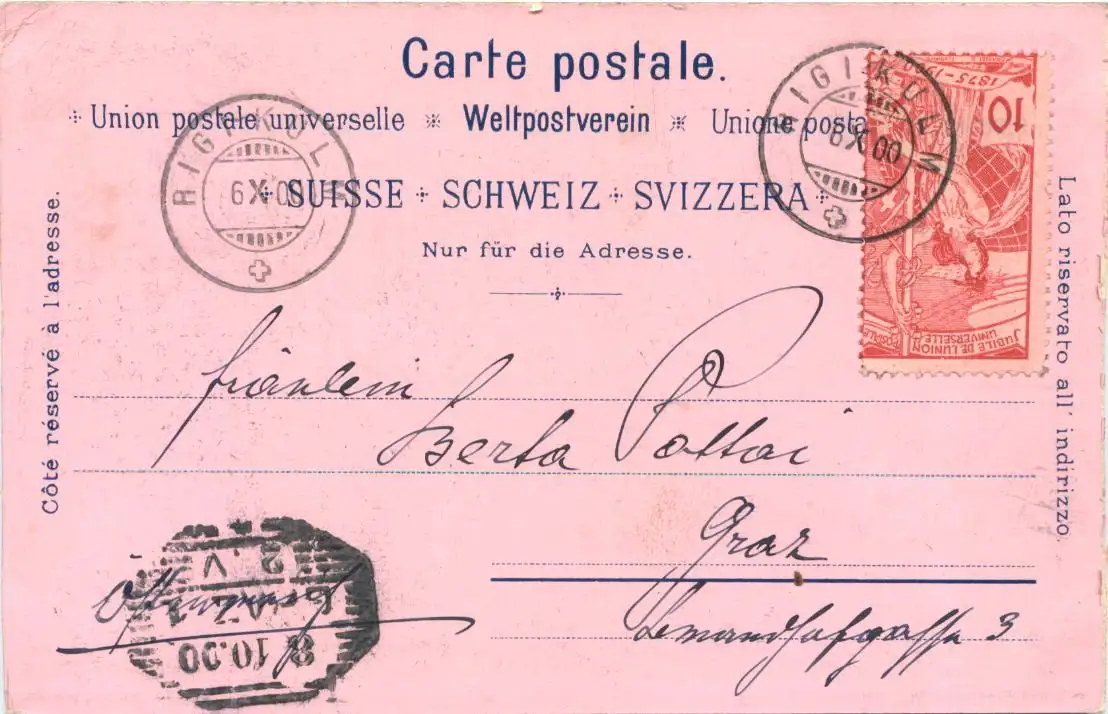 Carte postale.
Union postale universelle Weltpostverein Unione posta
SUISSE SCHWEIZ SVIZZERA
Nur für die Adresse.
Côté réservé à l'adresse.
Lato riservato all' indirizzo.
RIGI-KULM
6 X 00
RIGI-KULM
6 X 00
10
1875-1
JUBILÉ DE L'UNION
UNIVERSELLE
Fräulein
Berta Pottai
Graz
3
GRAZ 1
8 10.00
2 V